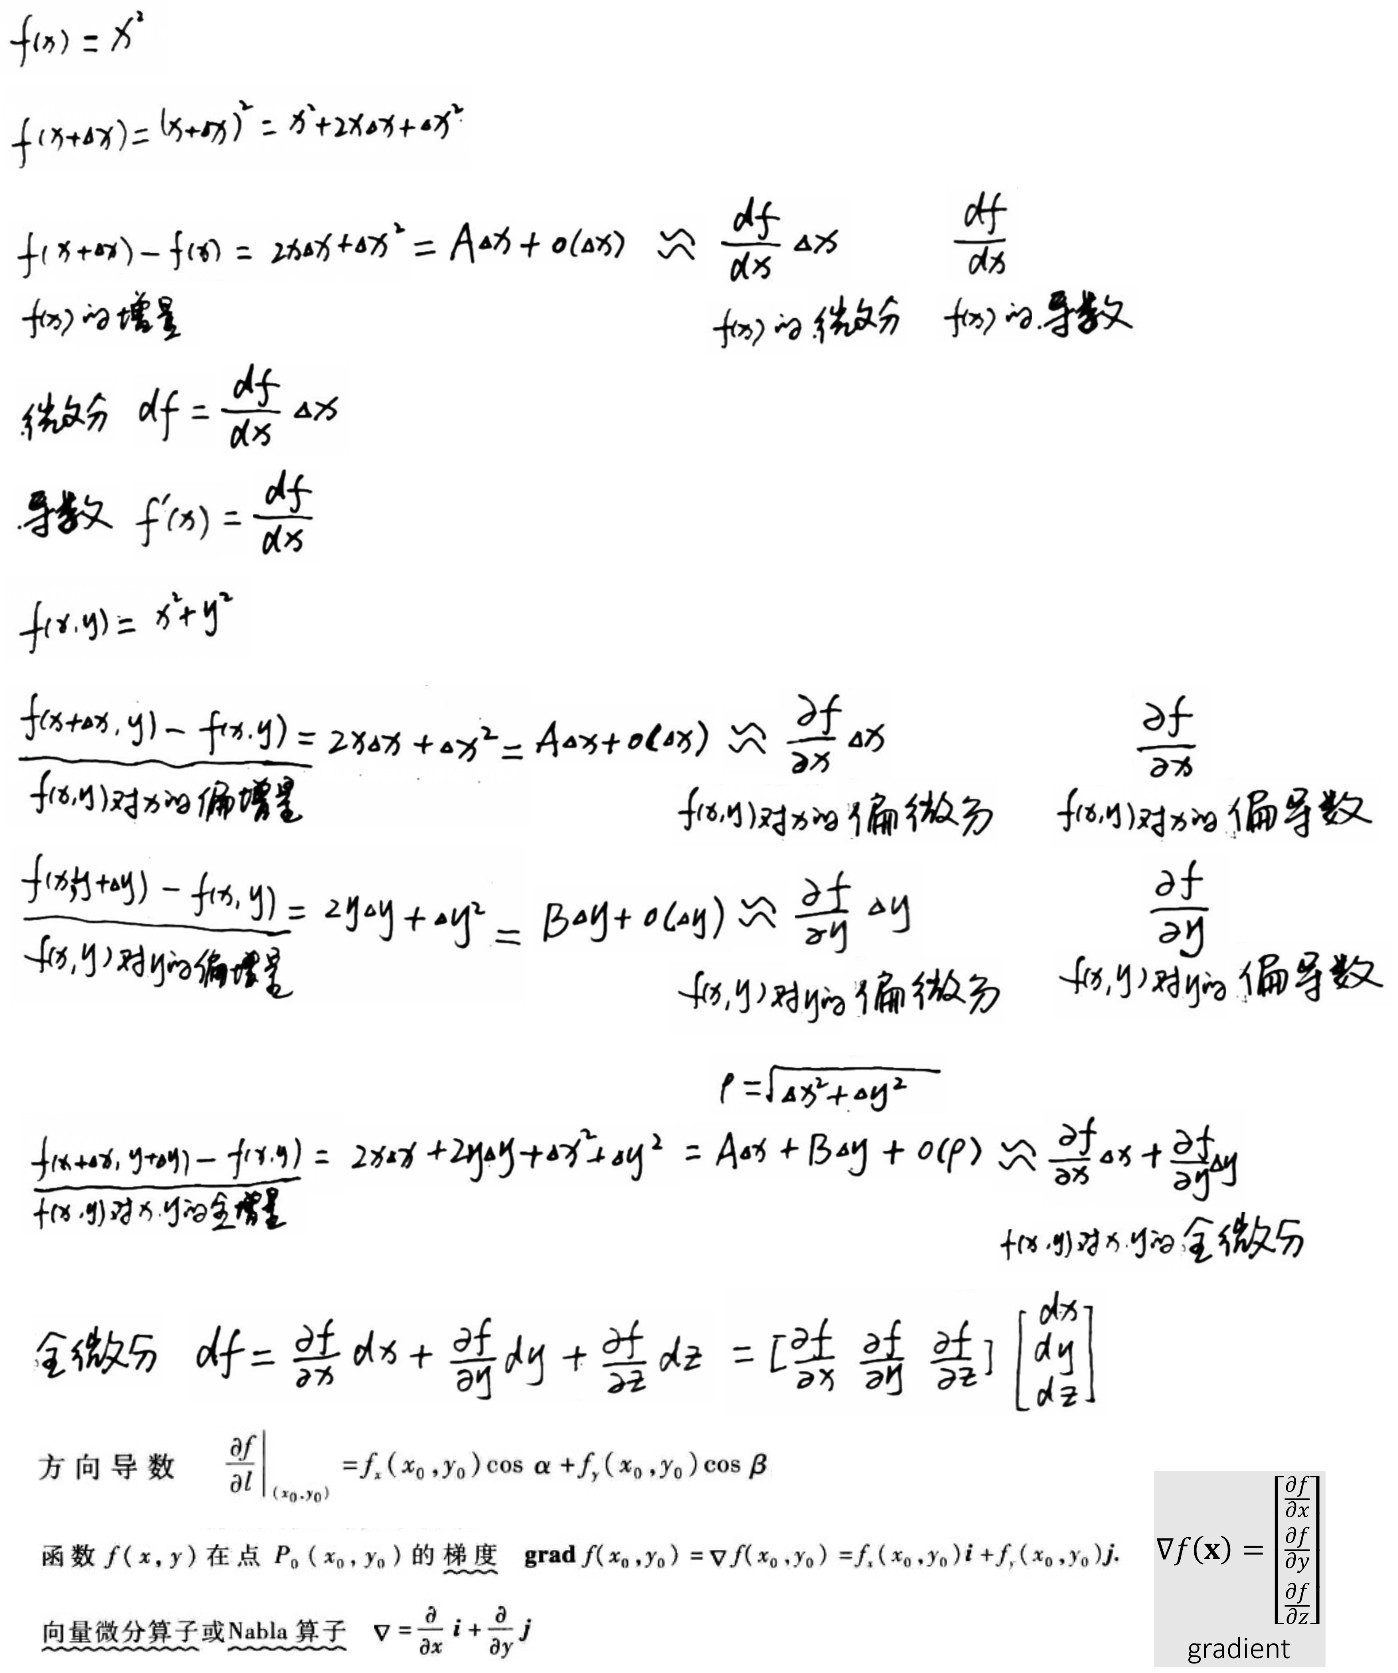 f(x) = x²
f(x+Δx) = (x+Δx)² = x²+2xΔx+Δx²
f(x+Δx) − f(x) = 2xΔx+Δx² = AΔx + o(Δx) ≈ df/dx Δx df/dx
f(x) 的增量 f(x) 的微分 f(x) 的导数
微分 df = df/dx Δx
导数 f′(x) = df/dx
f(x,y) = x²+y²
f(x+Δx, y) − f(x,y) = 2xΔx + Δx² = AΔx + o(Δx) ≈ ∂f/∂x Δx ∂f/∂x
f(x,y)对x的偏增量 f(x,y)对x的偏微分 f(x,y)对x的偏导数
f(x,y+Δy) − f(x,y) = 2yΔy + Δy² = BΔy + o(Δy) ≈ ∂f/∂y Δy ∂f/∂y
f(x,y)对y的偏增量 f(x,y)对y的偏微分 f(x,y)对y的偏导数
ρ = √(Δx²+Δy²)
f(x+Δx, y+Δy) − f(x,y) = 2xΔx + 2yΔy + Δx² + Δy² = AΔx + BΔy + o(ρ) ≈ ∂f/∂x Δx + ∂f/∂y Δy
f(x,y)对x.y的全增量 f(x,y)对x.y的全微分
全微分 df = ∂f/∂x dx + ∂f/∂y dy + ∂f/∂z dz = [∂f/∂x ∂f/∂y ∂f/∂z] [dx dy dz]
方向导数 ∂f/∂l |(x₀,y₀) = fₓ(x₀,y₀)cos α + f_y(x₀,y₀)cos β
函数 f(x,y) 在点 P₀(x₀,y₀) 的梯度 grad f(x₀,y₀) = ∇f(x₀,y₀) = fₓ(x₀,y₀)i + f_y(x₀,y₀)j.
向量微分算子或Nabla 算子 ∇ = ∂/∂x i + ∂/∂y j
∇f(x) = [∂f/∂x ∂f/∂y ∂f/∂z]
gradient